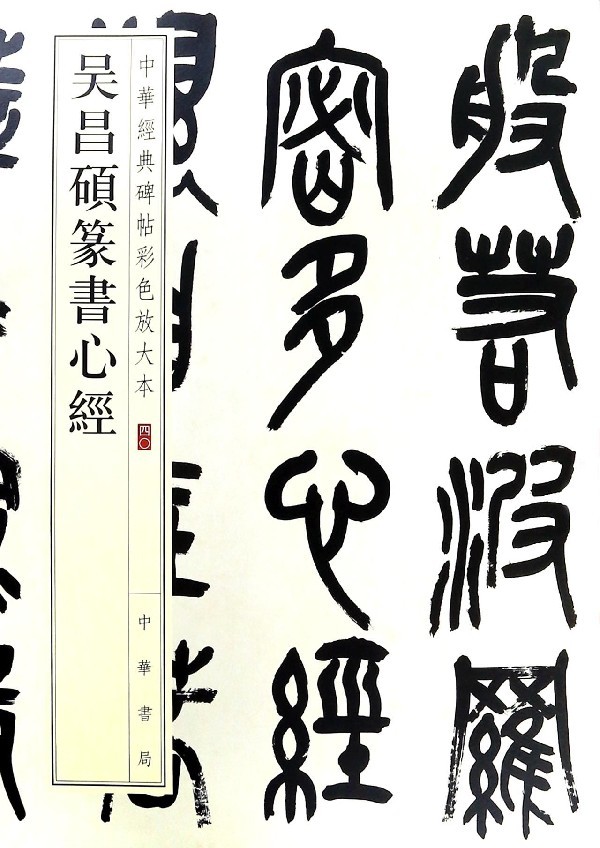 般若波羅
密多心經
中華經典碑帖彩色放大本 四〇
中華書局
吴昌碩篆書心經